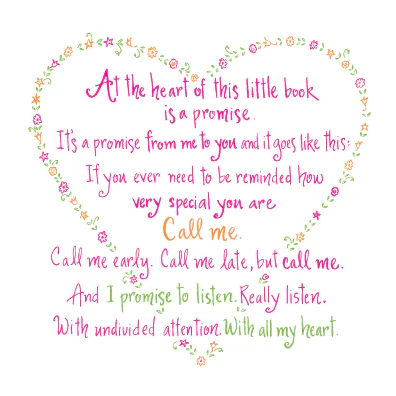 At the heart of this little book
is a promise.
It's a promise from me to you and it goes like this:
If you ever need to be reminded how
very special you are
Call me.
Call me early. Call me late, but call me.
And I promise to listen. Really listen.
With undivided attention. With all my heart.